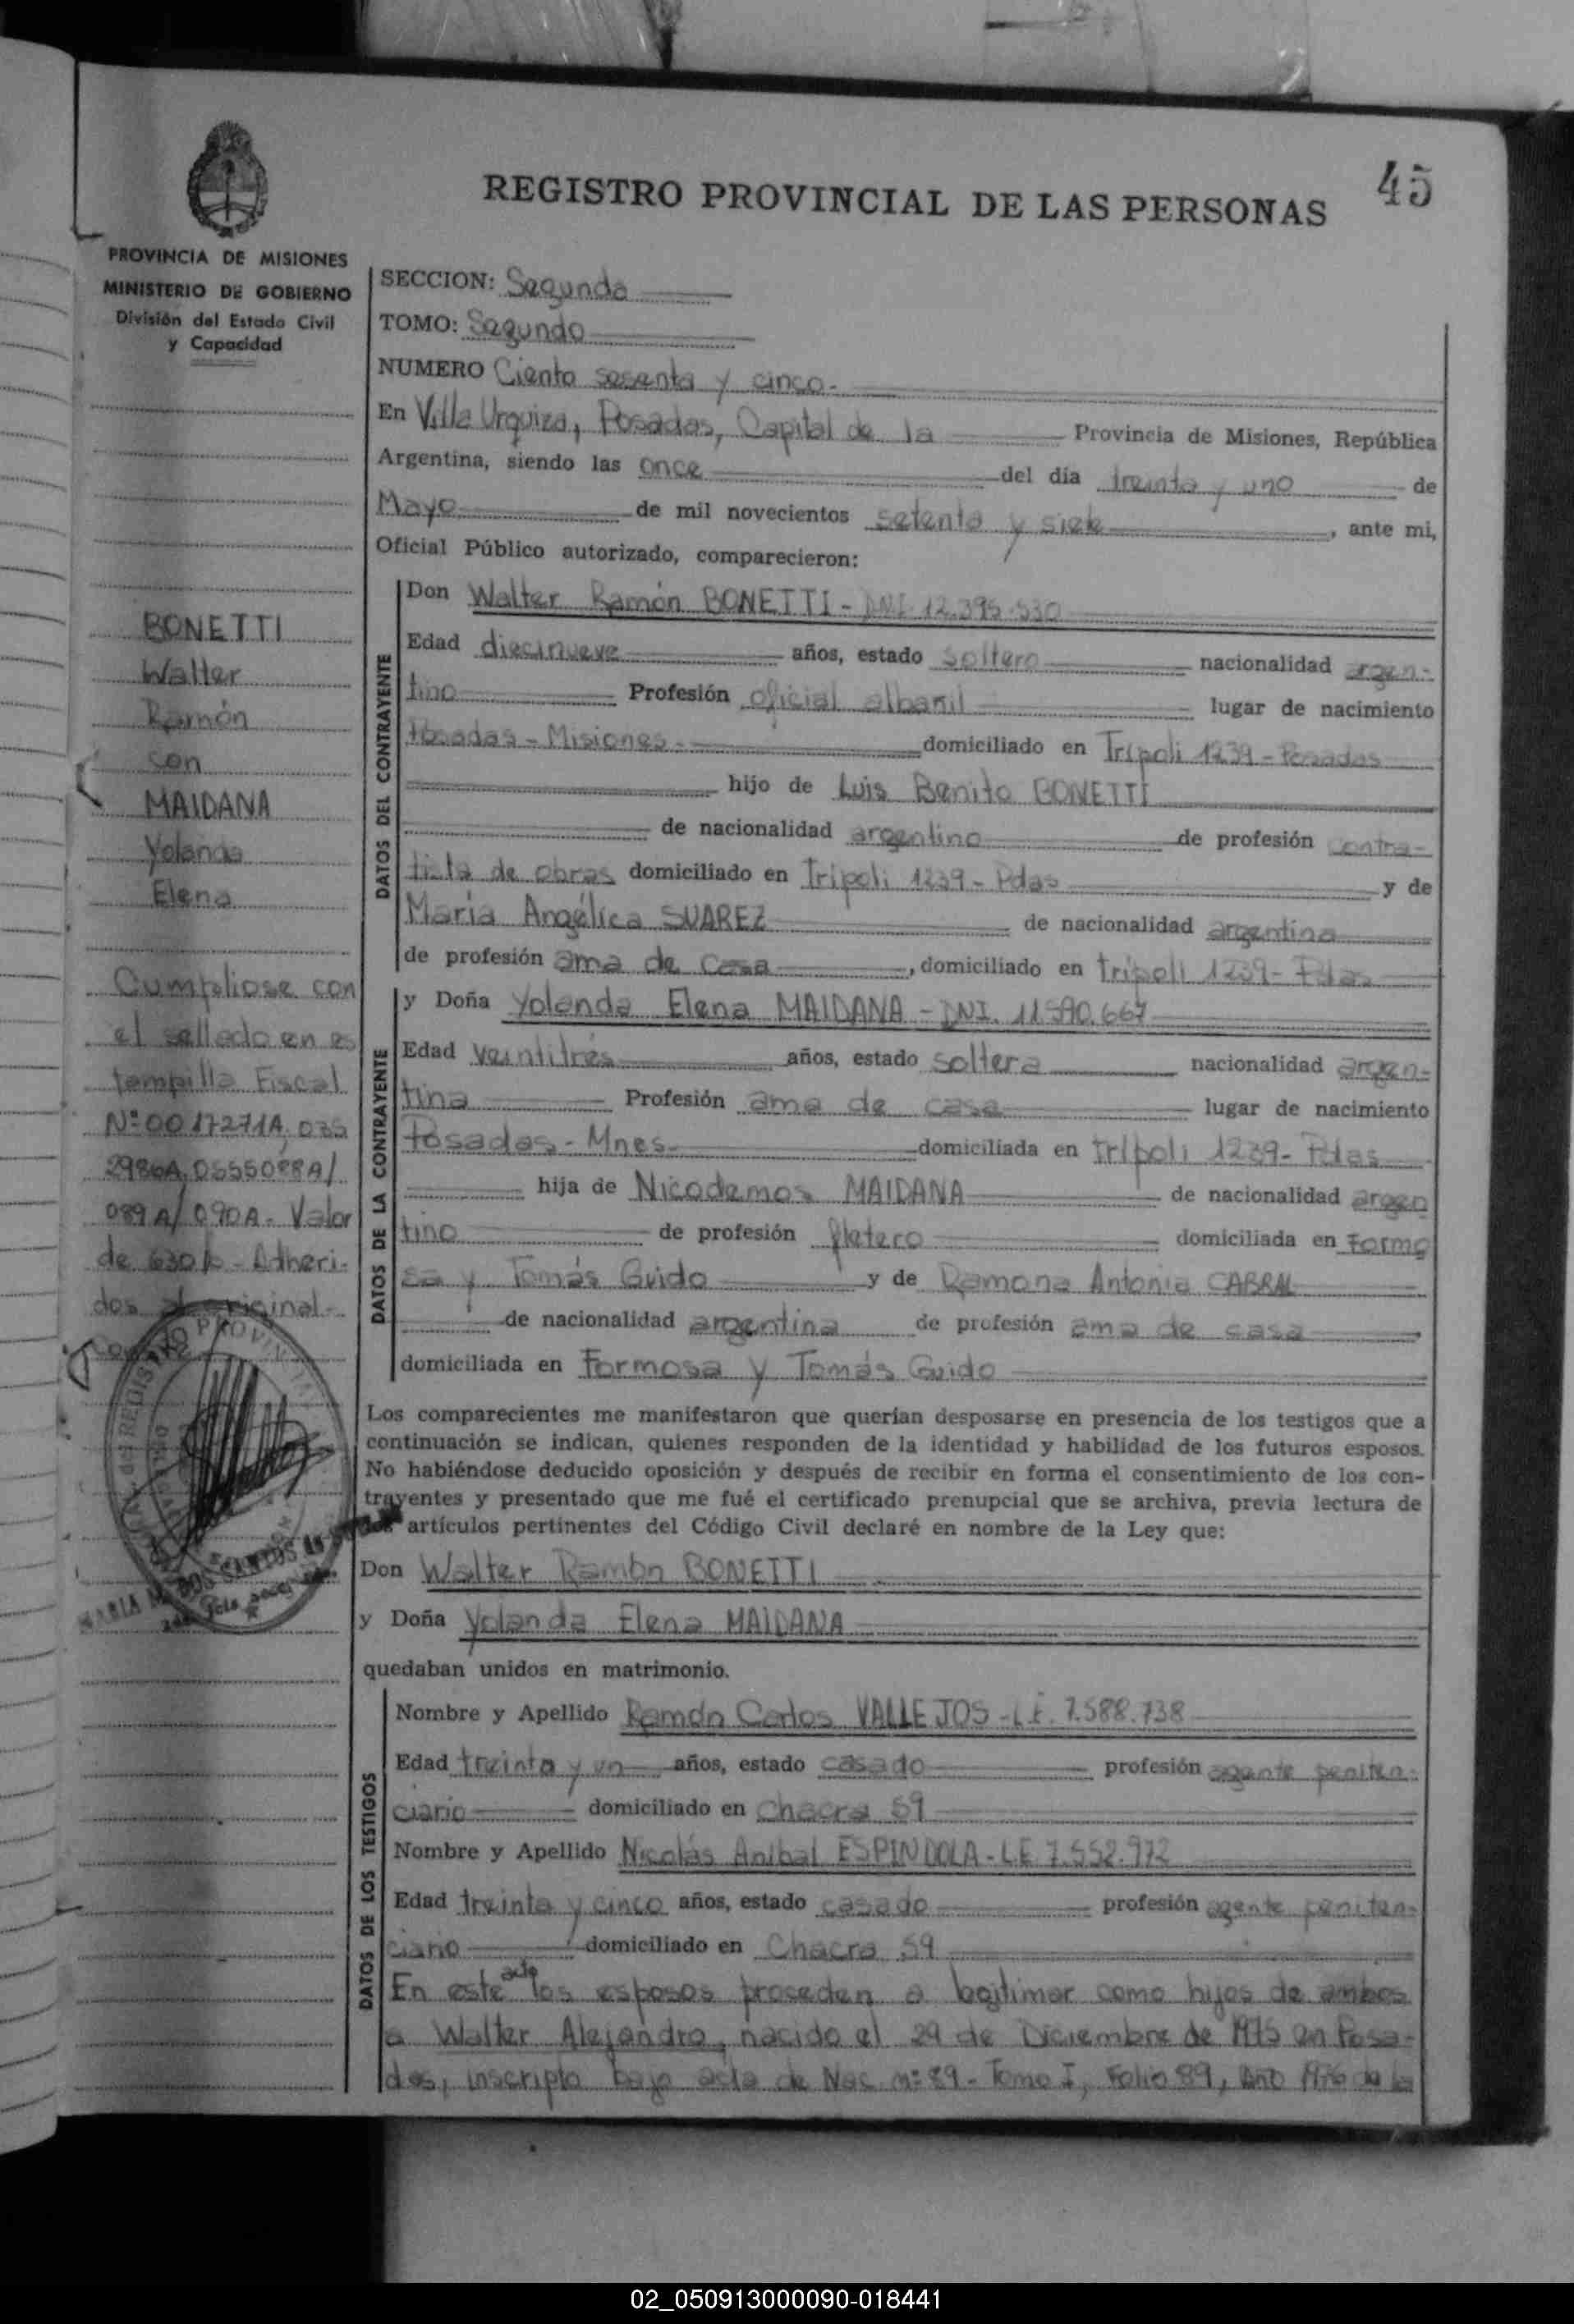 45
REGISTRO PROVINCIAL DE LAS PERSONAS
PROVINCIA DE MISIONES
MINISTERIO DE GOBIERNO
División del Estado Civil
y Capacidad
BONETTI
Walter
Ramón
con
MAIDANA
Yolanda
Elena
Cumpliose con
el sellado en es
tampilla Fiscal
Nº 0017271A, 035
2986A, 0555088A/
089A/090A - Valor
de 630 - Adheri-
dos al original-
SECCION: Segunda
TOMO: Segundo
NUMERO Ciento sesenta y cinco.
En Villa Urquiza, Posadas, Capital de la Provincia de Misiones, República
Argentina, siendo las once del día treinta y uno de
Mayo de mil novecientos setenta y siete, ante mi,
Oficial Público autorizado, comparecieron:
DATOS DEL CONTRAYENTE
Don Walter Ramón BONETTI - DNI 12.395.530
Edad diecinueve años, estado soltero nacionalidad argen-
tino Profesión oficial albañil lugar de nacimiento
Posadas - Misiones - domiciliado en Trípoli 1239 - Posadas
hijo de Luis Benito BONETTI
de nacionalidad argentino de profesión contra-
tista de obras domiciliado en Tripoli 1239 - Pdas y de
María Angélica SUAREZ de nacionalidad argentina
de profesión ama de casa, domiciliado en tripoli 1239 - Pdas
DATOS DE LA CONTRAYENTE
y Doña Yolanda Elena MAIDANA - DNI. 11.590.667
Edad veintitrés años, estado soltera nacionalidad argen-
tina Profesión ama de casa lugar de nacimiento
Posadas - Mnes - domiciliada en trípoli 1239 - Pdas
hija de Nicodemos MAIDANA de nacionalidad argen
tino de profesión fletero domiciliada en Formo
sa y Tomás Guido y de Ramona Antonia CABRAL
de nacionalidad argentina de profesión ama de casa,
domiciliada en Formosa y Tomás Guido
Los comparecientes me manifestaron que querían desposarse en presencia de los testigos que a
continuación se indican, quienes responden de la identidad y habilidad de los futuros esposos.
No habiéndose deducido oposición y después de recibir en forma el consentimiento de los con-
trayentes y presentado que me fué el certificado prenupcial que se archiva, previa lectura de
los artículos pertinentes del Código Civil declaré en nombre de la Ley que:
Don Walter Ramón BONETTI
y Doña Yolanda Elena MAIDANA
quedaban unidos en matrimonio.
DATOS DE LOS TESTIGOS
Nombre y Apellido Ramón Carlos VALLEJOS - L.E. 7.588.738
Edad treinta y un años, estado casado profesión agente peniten-
ciario domiciliado en Chacra 59
Nombre y Apellido Nicolás Aníbal ESPINDOLA - L.E 7.552.972
Edad treinta y cinco años, estado casado profesión agente peniten-
ciario domiciliado en Chacra 59
En este acto los esposos proceden a legitimar como hijos de ambos
a Walter Alejandro, nacido el 29 de Diciembre de 1975 en Posa-
das, inscripto bajo acta de Nac. nº 89 - Tomo I, Folio 89, año 1976 de la
02_050913000090-018441